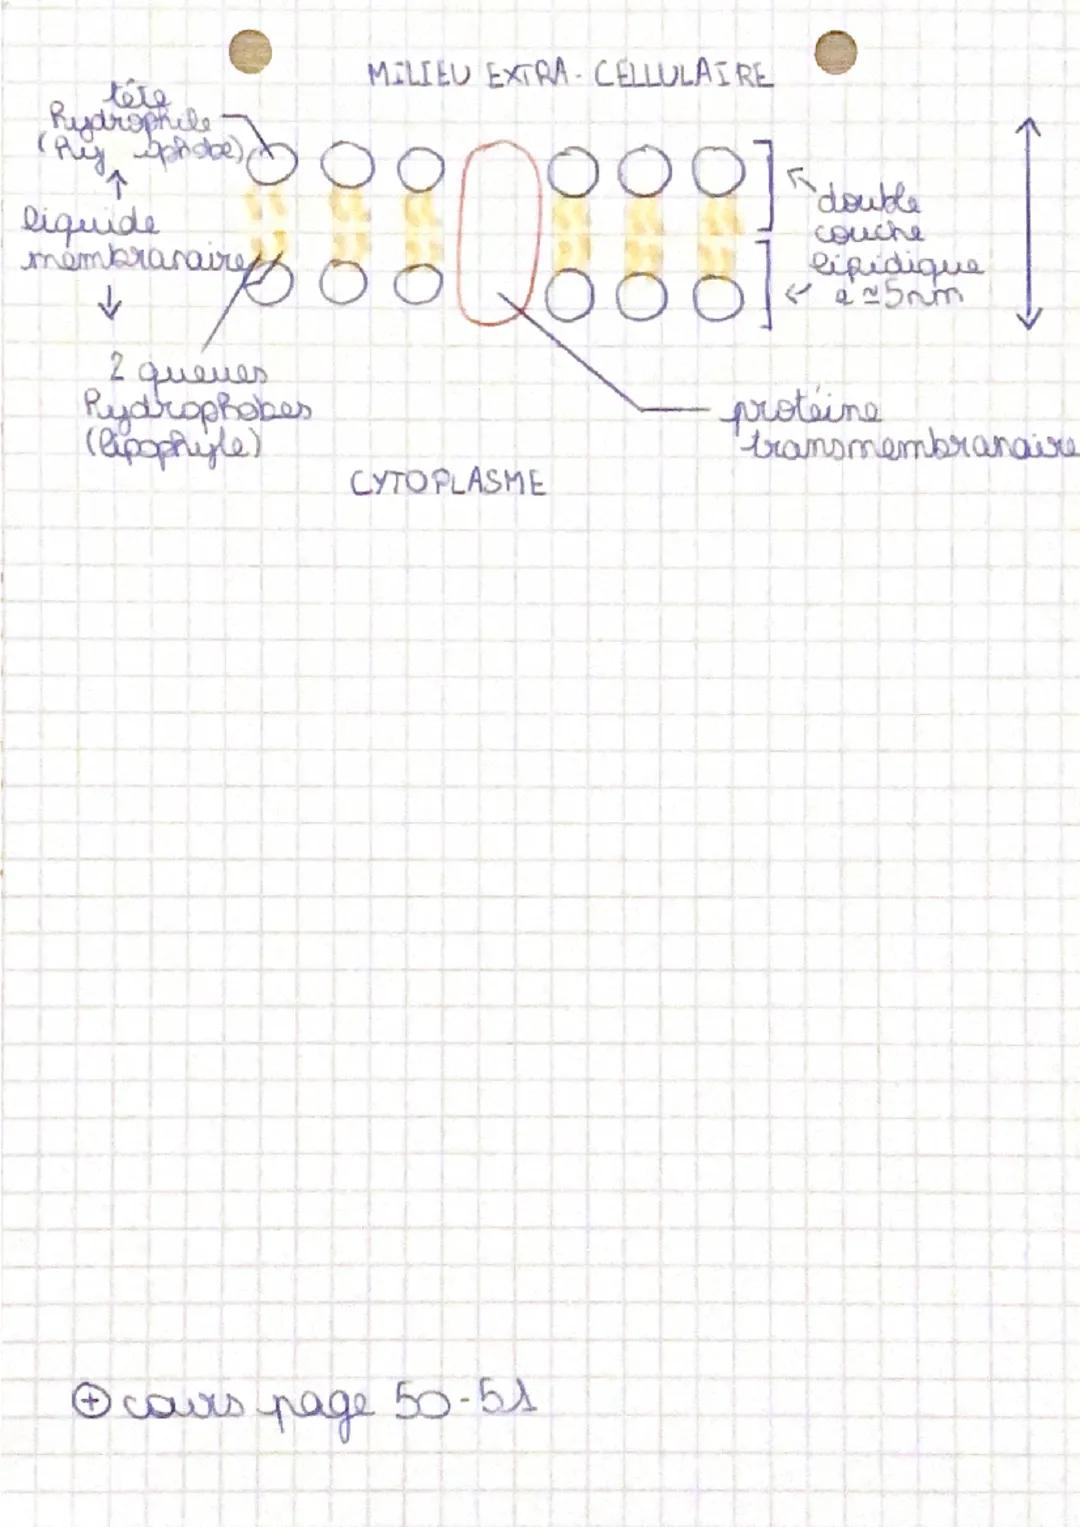 MILIEU EXTRA-CELLULAIRE
tête
hydrophile
liquide
membranaire
double
couche
lipidique
e ≃ 5nm
2 queues
hydrophobes
(lipophyle)
protéine
transmembranaire
CYTOPLASME
⊕ cours page 50-51